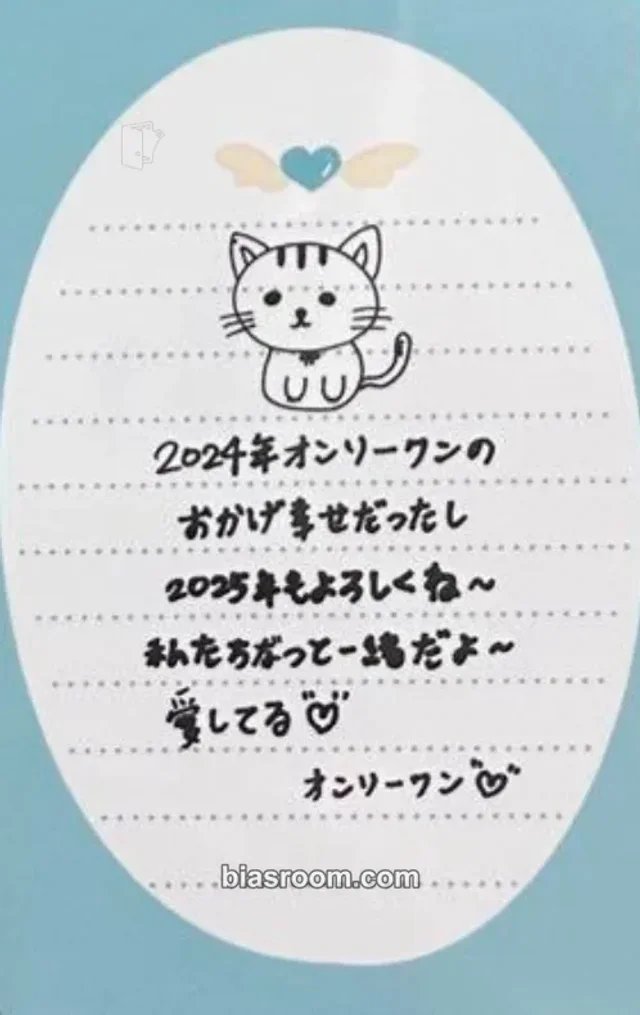 2024年オンリーワンの
おかげ幸せだったし
2025年もよろしくね～
私たちずっと一緒だよ～
愛してる♡
オンリーワン♡
biasroom.com